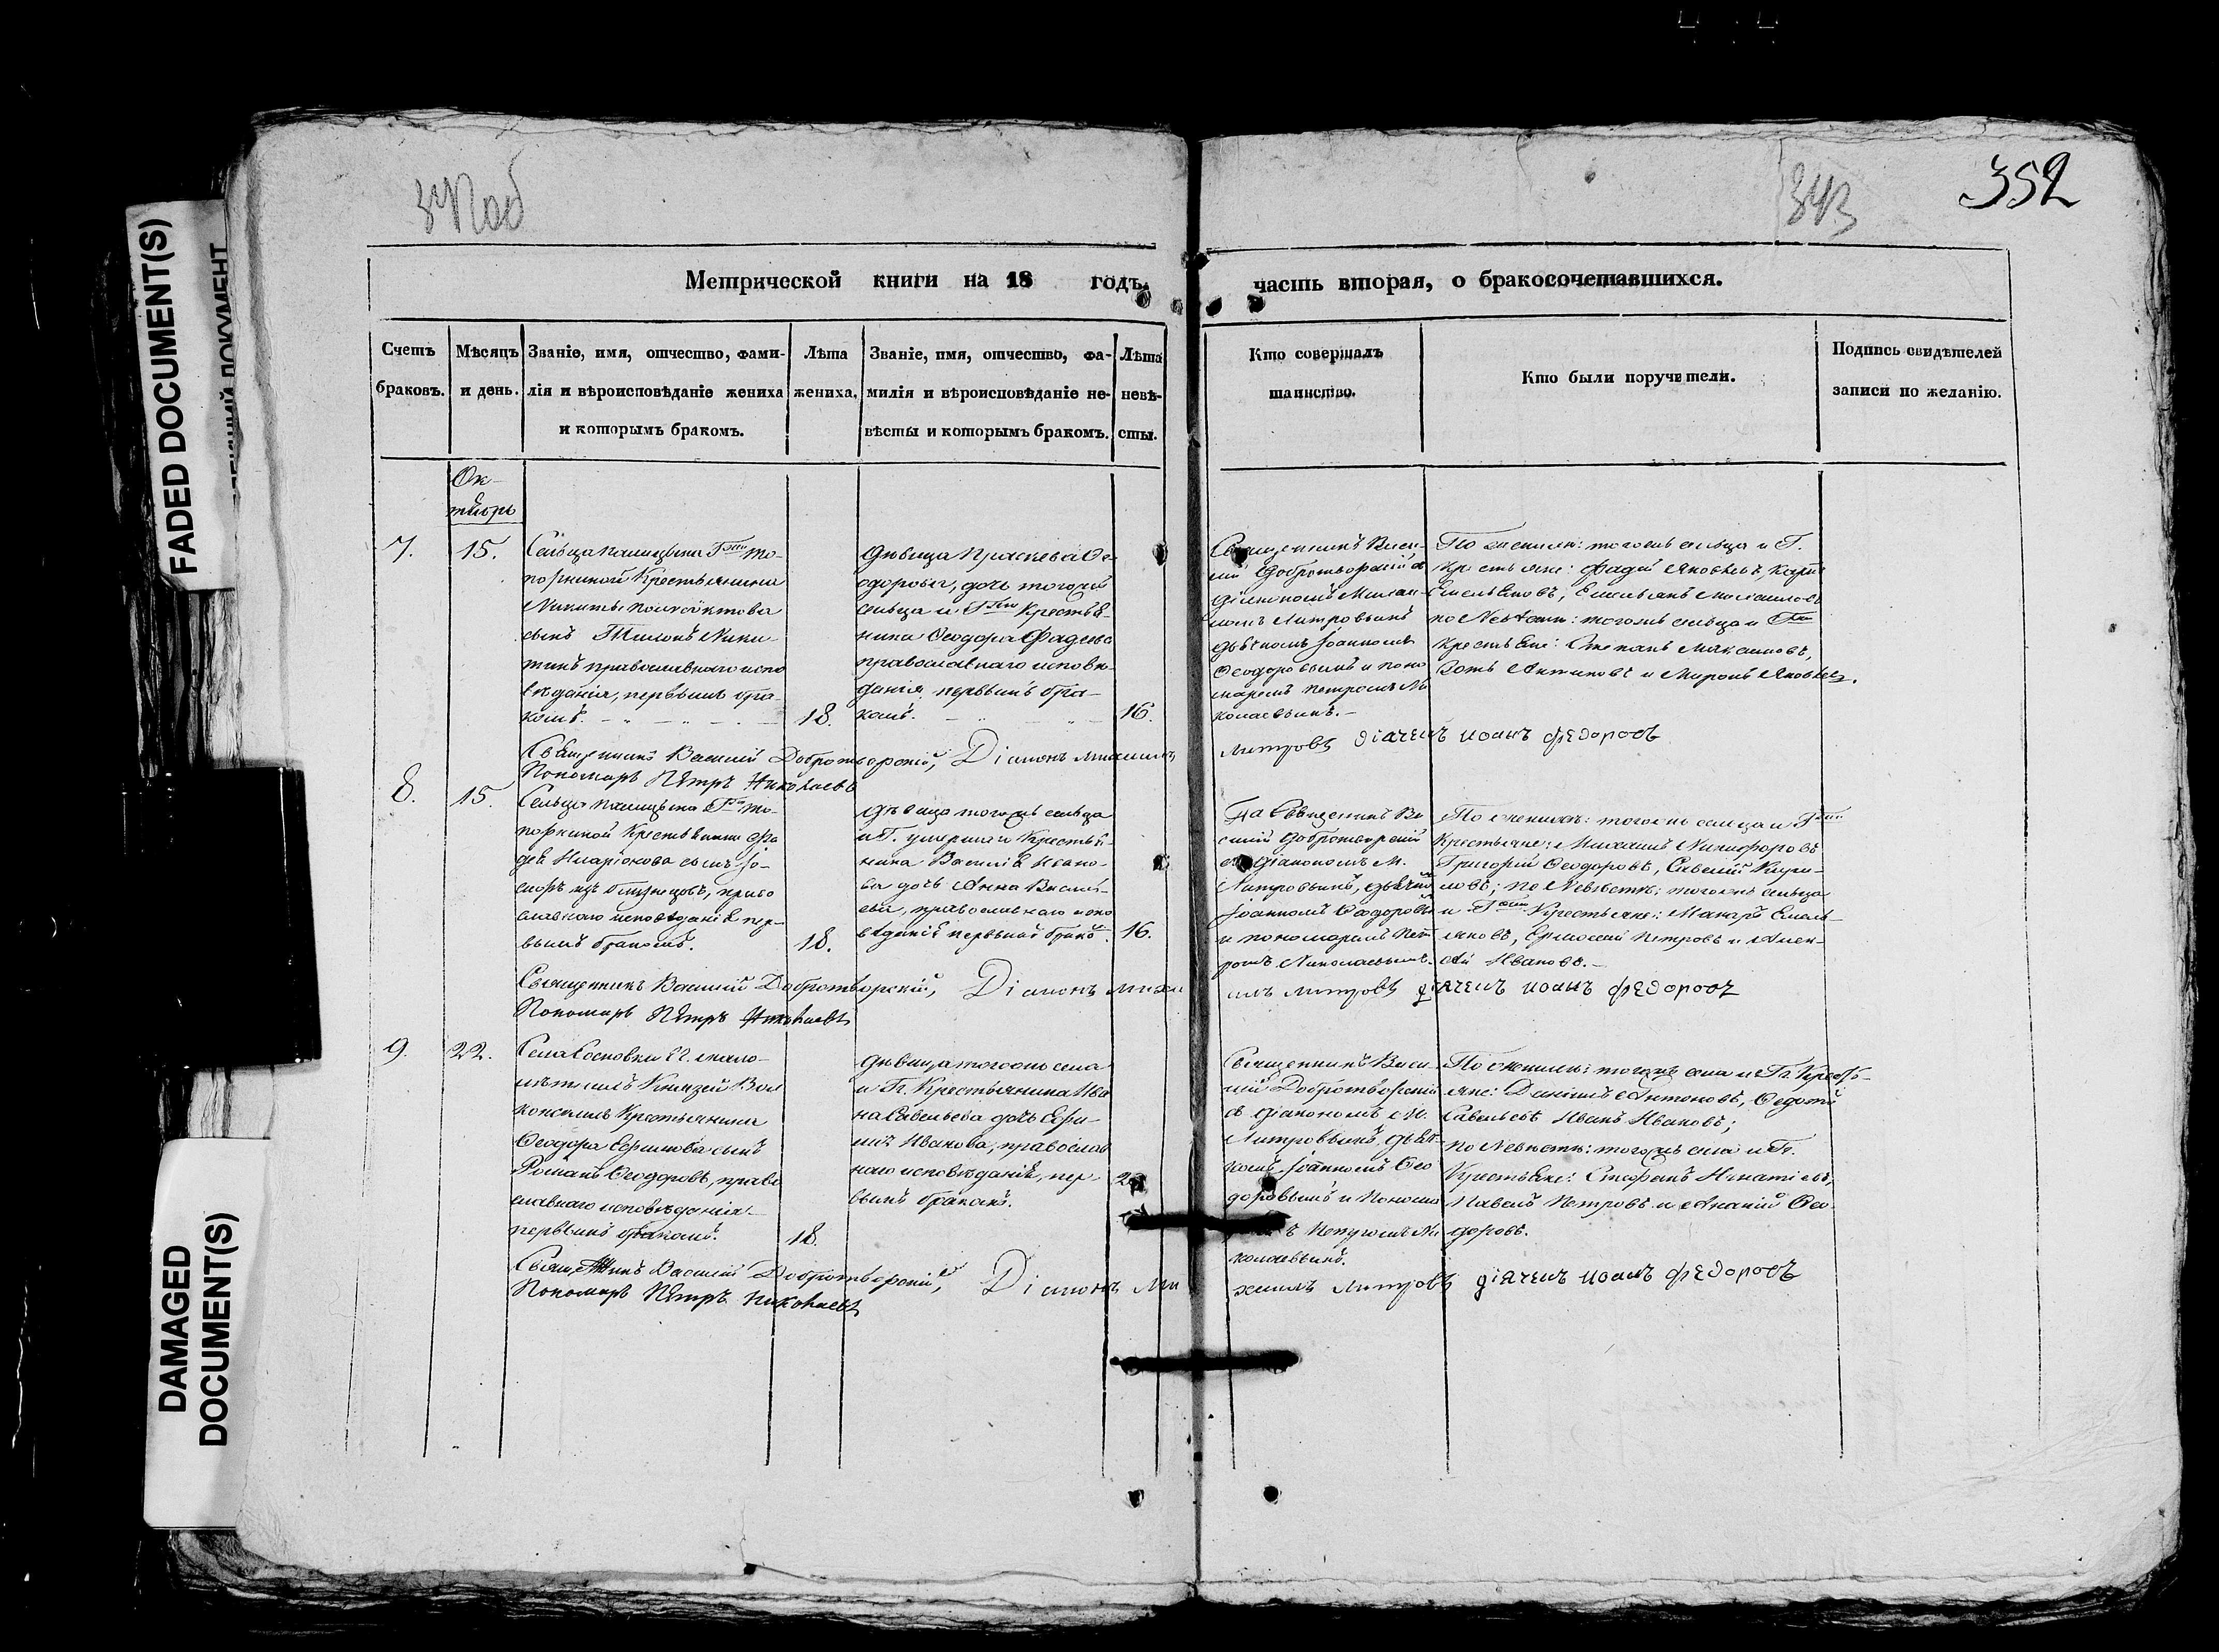 FADED DOCUMENT(S)
DAMAGED
DOCUMENT(S)
343
352
Метрической книги на 18 годъ,
часть вторая, о бракосочетавшихся.
Счетъ
браковъ.
Мѣсяцъ
и день.
Званіе, имя, отчество, фами-
лія и вѣроисповѣданіе жениха
и которымъ бракомъ.
Лѣта
жениха.
Званіе, имя, отчество, фа-
милія и вѣроисповѣданіе не-
вѣсты и которымъ бракомъ.
Лѣта
невѣ-
сты.
Кто совершалъ
таинство.
Кто были поручители.
Подпись свидѣтелей
записи по желанію.
Ок-
тябрь
7.
15.
Крестьянина
Никиты
сынъ Никի-
тинъ православнаго испо
вѣданія, первымъ бра-
комъ.
18.
дѣвица Ѳе-
одорова, дочь тогожъ
сельца и Крестья-
нина Ѳеодора Фадеева
православнаго исповѣ-
данія первымъ бра-
комъ.
16.
Священникъ Васи-
лій Добротворскій съ
діакономъ Михаи-
ломъ Митровымъ
дьячкомъ Іоанномъ
Ѳеодоровымъ и поно
маремъ Петромъ Ни
колаевымъ.
По женихѣ: тогожъ сельца и Г.
крестьяне: Фадей Яковлевъ, Карпъ
Емельяновъ, Емельянъ
по Невѣстѣ: тогожъ сельца и
крестьяне: Степанъ Максимовъ,
и Миронъ Яковлевъ.
Священникъ Василій Добротворскій, Діаконъ Михаилъ
Митровъ діячекъ Иоанъ Федоровъ
Пономарь Пѣтръ Николаевъ
8.
15.
Сельца
Крестьянина Фа
дея Иларіонова сынъ
право
славнаго исповѣданія пер-
вымъ бракомъ.
18.
дѣвица тогожъ сельца
и Г. умершаго Крестья-
нина Василія Ивано-
ва дочь Анна Василь-
ева, православнаго испо
вѣданія первымъ бракомъ.
16.
Священникъ Ва
силій Добротворскій
съ діакономъ М.
Митровымъ, дьячкомъ
Іоанномъ Ѳеодоровымъ
и пономаремъ Пет
ромъ Николаевымъ.
По женихѣ: тогожъ сельца и
Крестьяне: Михаилъ Никифоровъ
Григорій Ѳеодоровъ, Савелій Кири-
ловъ; по Невѣстѣ: тогожъ сельца
и Крестьяне: Макаръ Емель-
яновъ, Ермолай Петровъ и Алек-
сѣй Ивановъ.
Священникъ Василій Добротворскій, Діаконъ Михаи
илъ Митровъ діячекъ Иоанъ Федоровъ
Пономарь Пѣтръ Николаевъ
9.
22.
Села Сосновки Г. мало-
лѣтнихъ Князей Вол
конскихъ Крестьянина
Ѳеодора Ефимова сынъ
Романъ Ѳеодоровъ, право
славнаго исповѣданія
первымъ бракомъ.
18.
дѣвица тогожъ села
и Гг. Крестьянина Ива
на Савельева дочь Ефи-
мія Иванова, православ
наго исповѣданія, пер-
вымъ бракомъ.
Священникъ Васи
лій Добротворскій
съ діакономъ М.
Митровымъ, дьяч-
комъ Іоанномъ Ѳео
доровымъ и Понома
Петромъ Ни
колаевымъ.
По женихѣ: тогожъ села и Гг. Кресть-
яне: Даніилъ Антоновъ, Ѳедотъ
Савельевъ Иванъ Ивановъ;
по Невѣстѣ: тогожъ села и Гг.
Крестьяне: Стефанъ Игнатіевъ,
Павелъ Петровъ и Ананій Ѳео-
доровъ.
Василій Добротворскій, Діаконъ Ми
хаилъ Митровъ діячекъ Иоанъ Федоровъ
Пономарь Пѣтръ Николаевъ